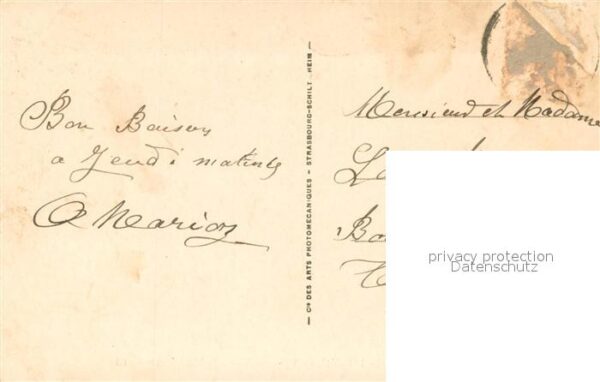 Bon Baisers
a Jeudi matinée
A Marion
Cie DES ARTS PHOTOMECANIQUES - STRASBOURG-SCHILT. HEIM
Monsieur et Madame
privacy protection
Datenschutz